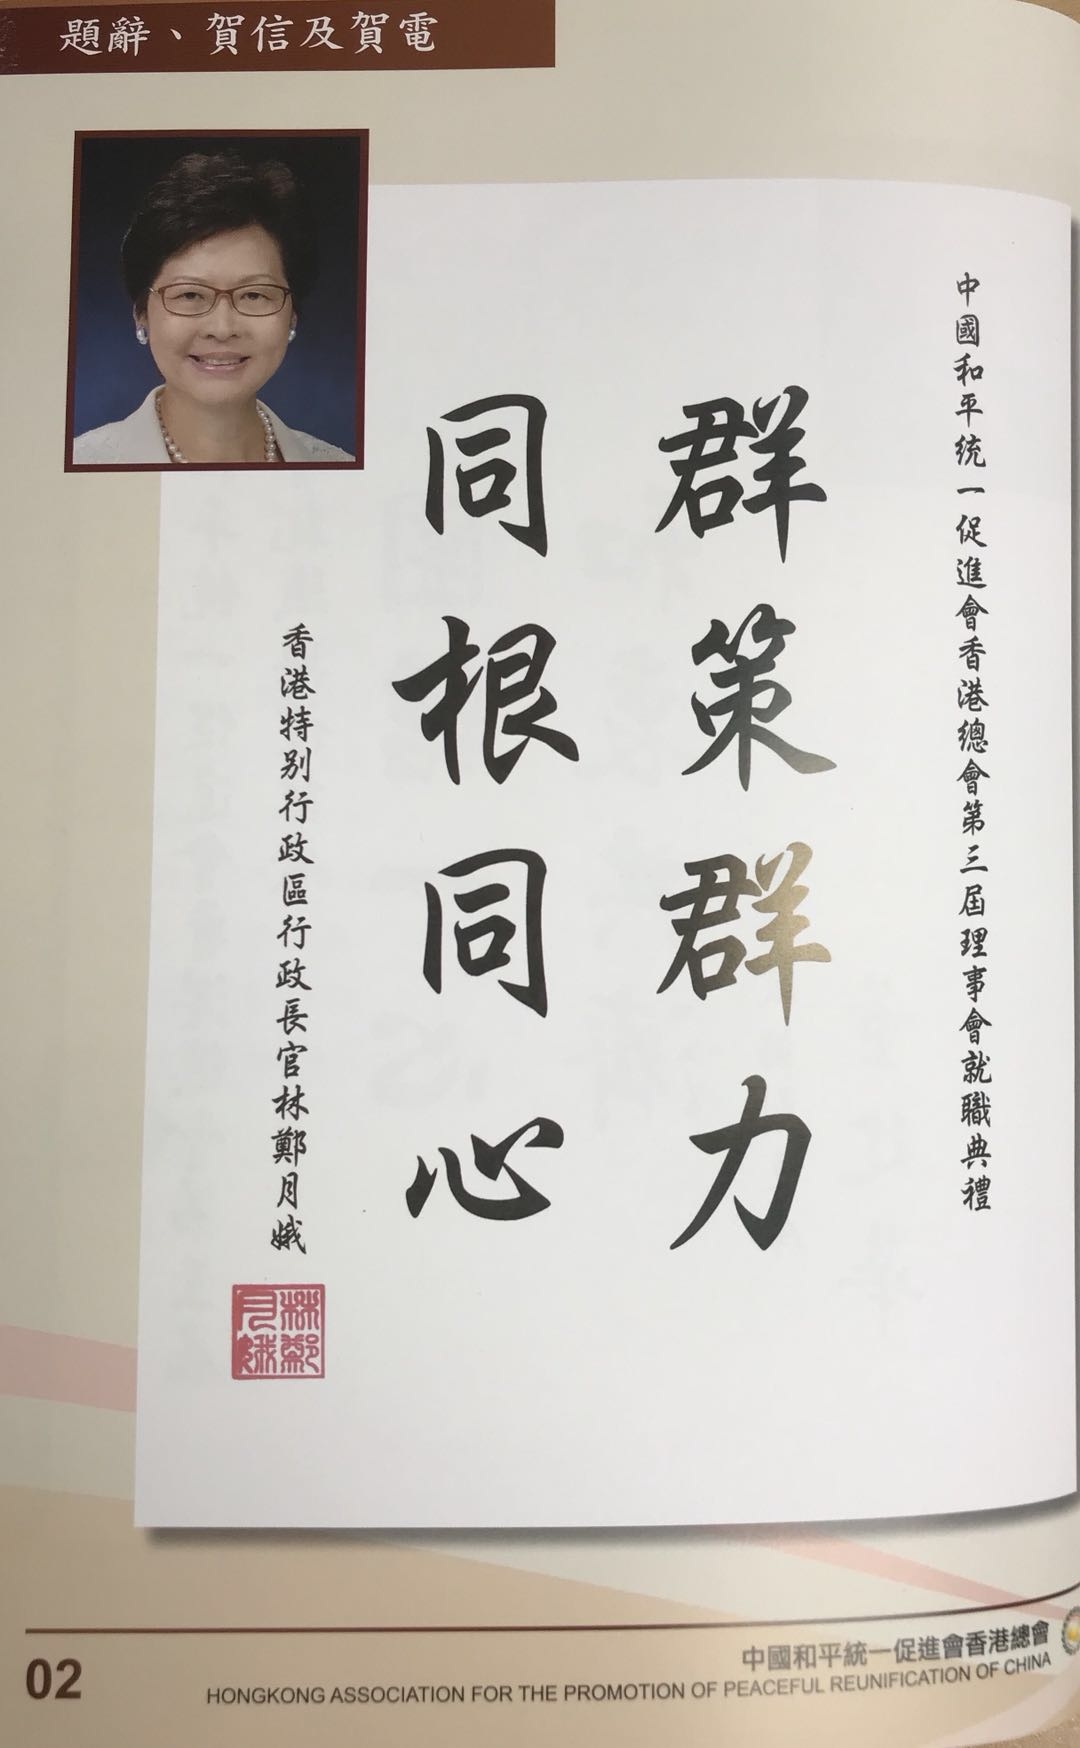 題辭、賀信及賀電
中國和平統一促進會香港總會第三屆理事會就職典禮
群策群力
同根同心
香港特別行政區行政長官林鄭月娥
林鄭
月娥
中國和平統一促進會香港總會
02
HONGKONG ASSOCIATION FOR THE PROMOTION OF PEACEFUL REUNIFICATION OF CHINA